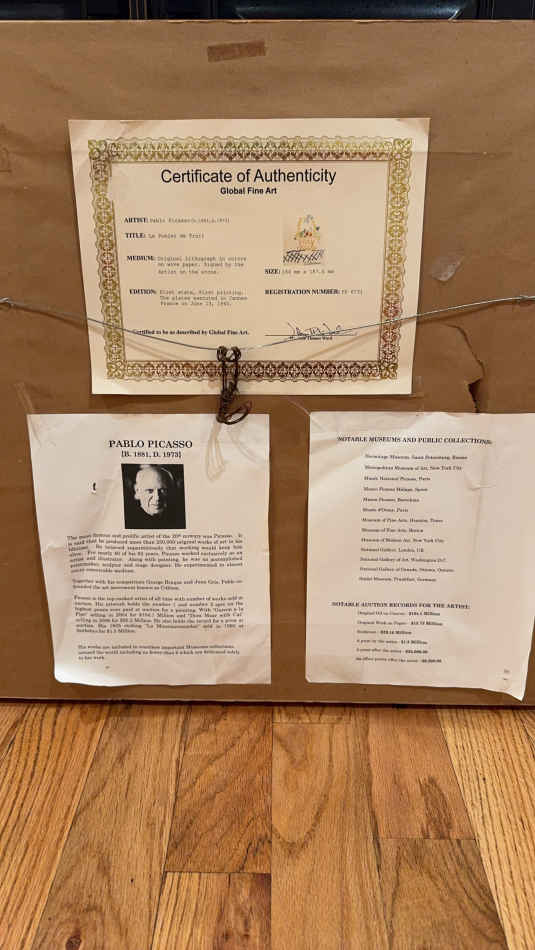 Certificate of Authenticity
Global Fine Art
ARTIST: Pablo Picasso(b.1881,d.1973)
TITLE: Le Panier de Fruit
MEDIUM: Original lithograph in colors
on wove paper. Signed by the
Artist on the stone.
SIZE:
EDITION: First state, First printing.
The plates executed in Cannes
France on June
REGISTRATION NUMBER:
Certified to be as described by Global Fine Art.
PABLO PICASSO
[B. 1881, D. 1973]
The most famous and prolific artist of the 20th century was Picasso. It
is said that he produced more than 250,000 original works of art in his
lifetime. He believed superstitiously that working would keep him
alive. For nearly 80 of his 92 years, Picasso worked exclusively as an
artist and illustrator. Along with painting, he was an accomplished
printmaker, sculptor and stage designer. He experimented in almost
every conceivable medium.
Together with his compatriots George Braque and Juan Gris, Pablo co-
founded the art movement known as Cubism.
Picasso is the top-ranked artist of all time with number of works sold at
auction. His artwork holds the number 1 and number 2 spot on the
highest prices ever paid at auction for a painting. With "Garcon a la
Pipe" selling in 2004 for $104.1 Million and "Dora Maar with Cat"
selling in 2006 for $95.2 Million. He also holds the record for a print at
auction. His 1935 etching "La Minotauromachie" sold in
Sotheby's for $1.5 Million.
His works are included in countless important Museum collections
around the world including no fewer than which are dedicated solely
to his work.
NOTABLE MUSEUMS AND PUBLIC COLLECTIONS:
Hermitage Museum, Saint Petersburg, Russia
Metropolitan Museum of Art, New York City
Musée National Picasso, Paris
Museo Picasso Málaga, Spain
Museu Picasso, Barcelona
Musée d'Orsay, Paris
Museum of Fine Arts, Houston, Texas
Museum of Fine Arts, Boston
Museum of Modern Art, New York City
National Gallery, London, UK
National Gallery of Art, Washington D.C.
National Gallery of Canada, Ottawa, Ontario
Städel Museum, Frankfurt, Germany
NOTABLE AUCTION RECORDS FOR THE ARTIST:
Original Oil on Canvas - $104.1 Million
Original Work on Paper -
Sculpture -
A print by the artist -
A print after the artist -
An offset poster after the artist -